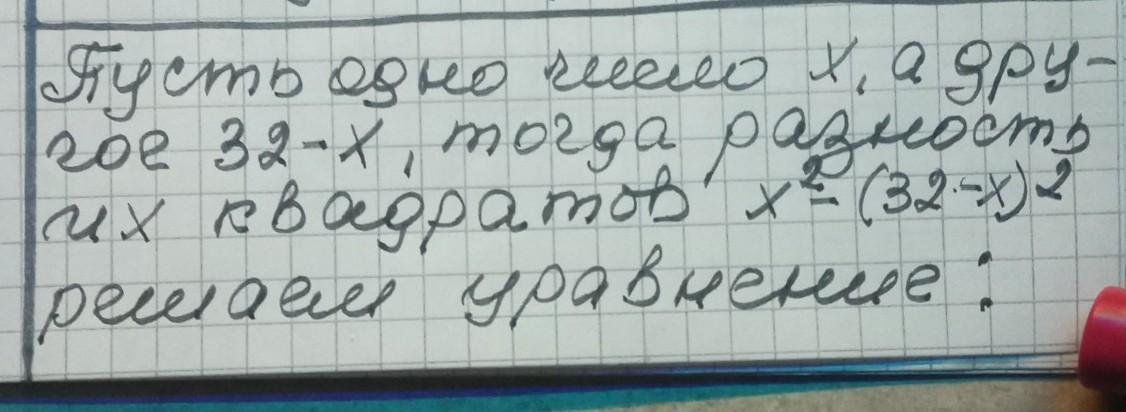 Пусть одно число х, а дру-
гое 32-х, тогда разность
их квадратов х²-(32-х)2
решаем уравнение: